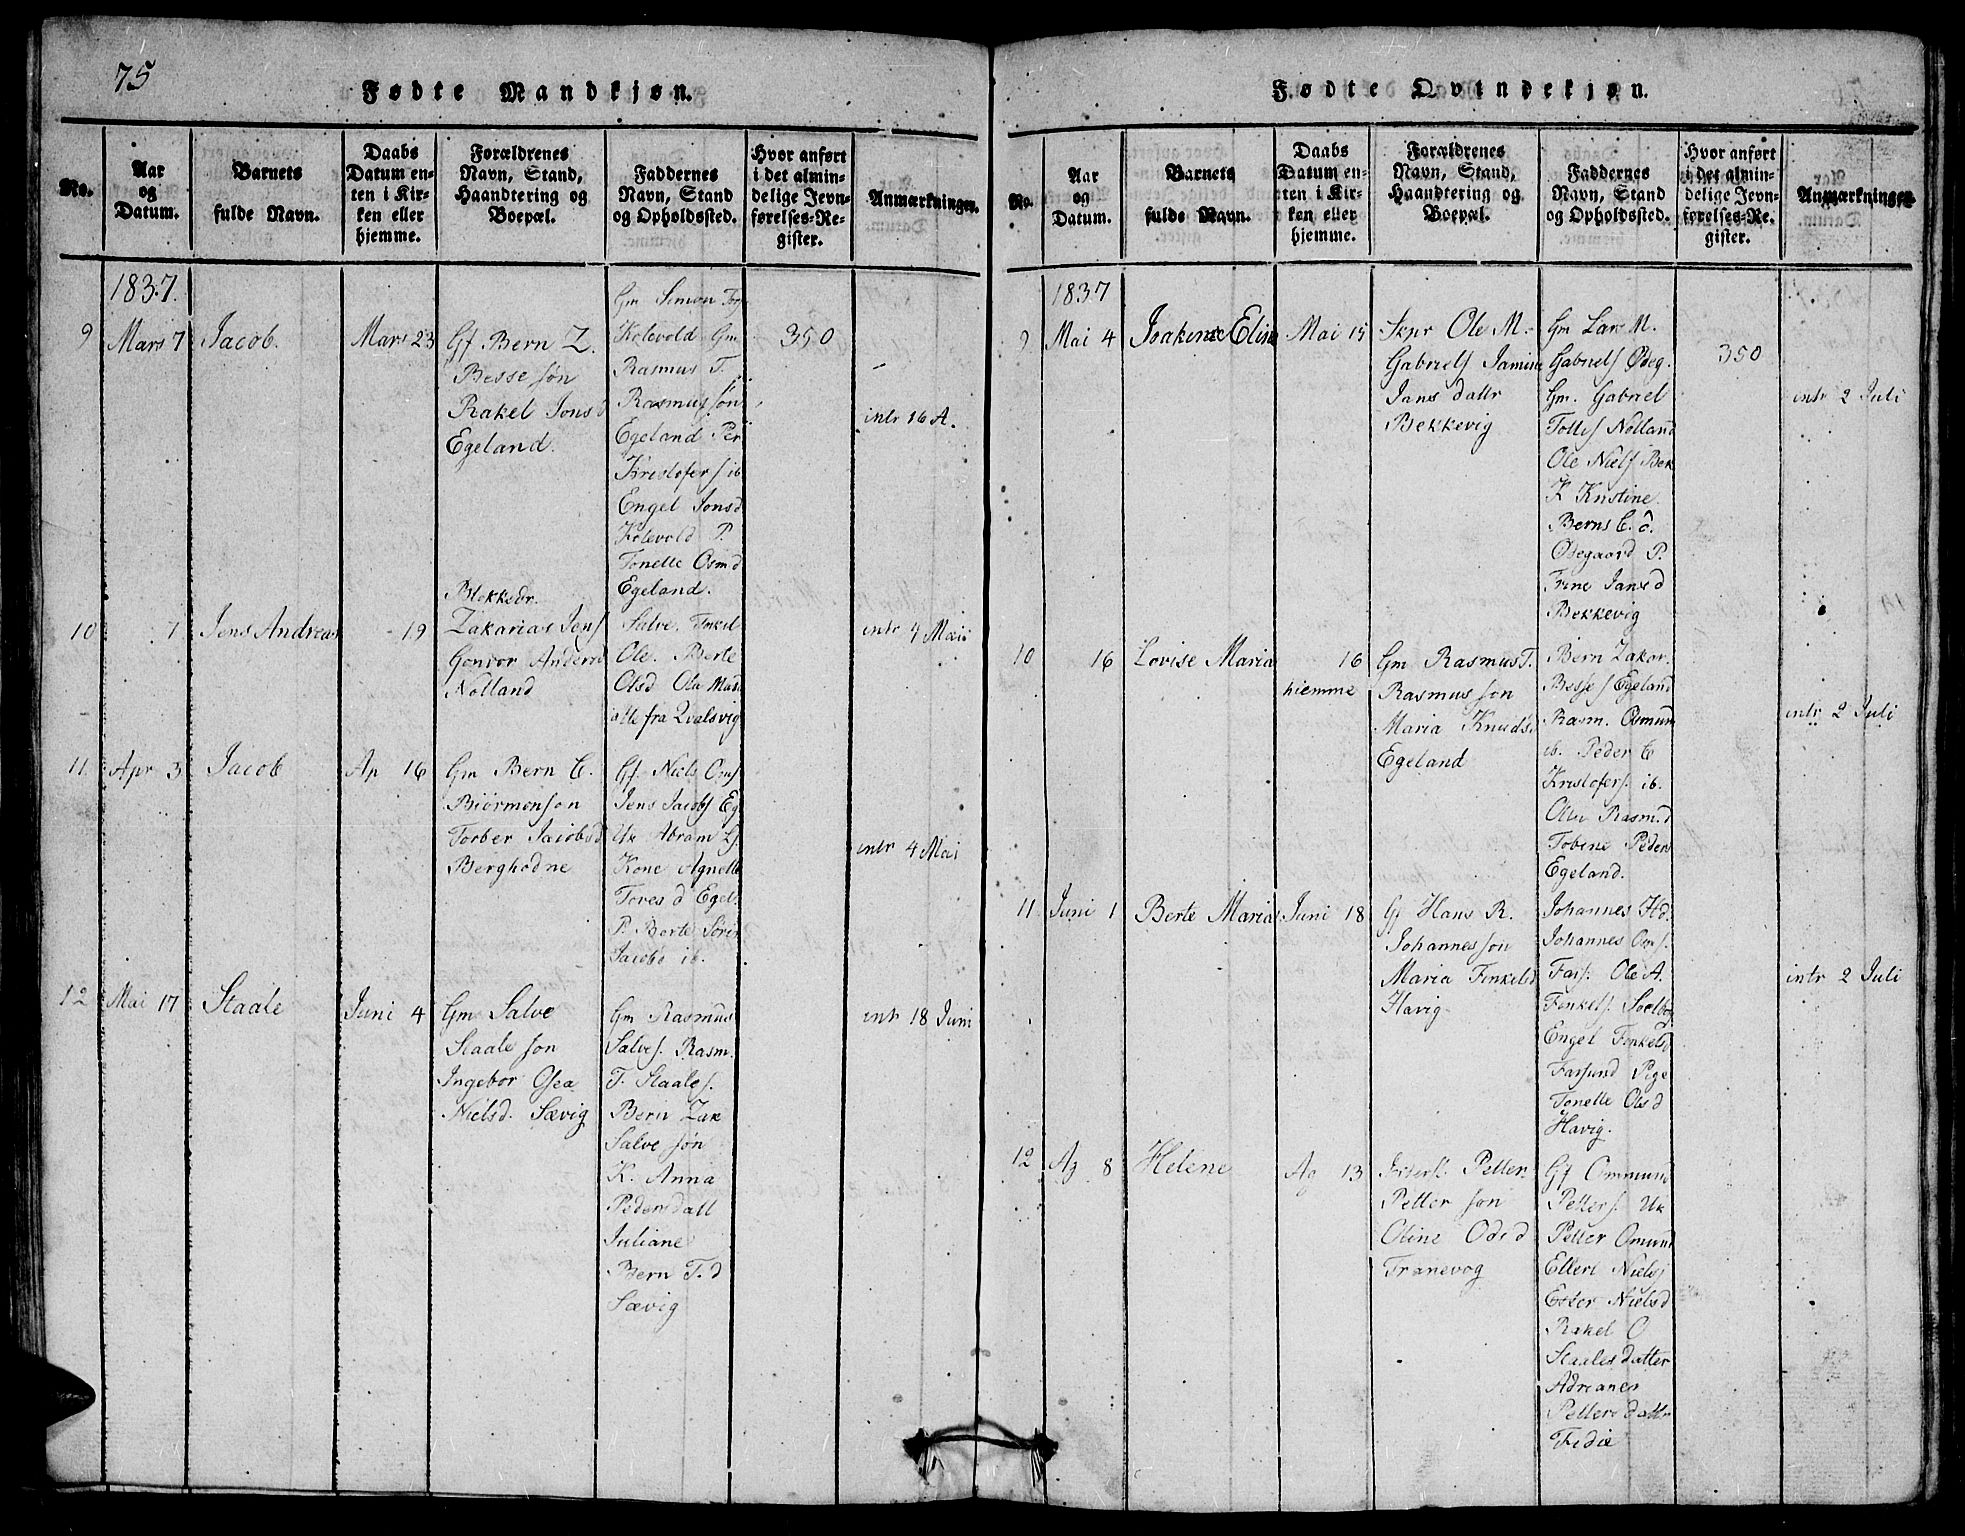 75
Fødte Mandkjøn.
No.
Aar
og
Datum.
Barnets
fulde Navn.
Daabs
Datum en-
ten i Kir-
ken eller
hjemme.
Forældrenes
Navn, Stand,
Haandtering og
Boepæl.
Faddernes
Navn, Stand
og Opholdssted.
Hvor anført
i det almin-
delige Jevn-
førelses-Re-
gister.
Anmærkninger.
1837.
9
Mars 7
Jacob.
Mars 23
Gf. Bern Z.
Besse søn
Rakel Jonsd
Egeland.
Gm Simon
Kolevold Gm
Rasmus T.
Rasmus søn
Egeland Per
Kristofers ib
Engel Jonsd
Kolevold P.
Tonette Osmd
Egeland.
350
intr 16 A.
10
7
Jens Andreas
19
Blokkedr.
Zakarias Jens
Gonvor Andersd
Nolland
Salve. Tnkel
Ole. Berte
Olsd Ola Mad
atte fra Qvalsvig
intr 4 Mai
11.
Apr 3
Jacob
Ap 16
Gm Bern C.
Biörmonson
Torber Jacobsd
Berghodne
Gf. Niels Oms
Jens Jacobs Eg
Uk Abram
Kone Agnette
Toresd Egel.
P. Berte Sören
Jacobs ib.
intr 4 Mai
12
Mai 17
Staale
Juni 4
Gm Salve
Staale son
Ingebor Osea
Nielsd. Sævig
Gm Rasmus
Salves. Rasm.
T. Staales.
Bern Zak
Salve søn
K. Anna
Pedersdatt
Juliane
Bern T. d
Sævig
intr 18 Juni
Fødte Qvindekjøn.
No.
Aar
og
Datum.
Barnets
fulde Navn.
Daabs
Datum en-
ten i Kir-
ken eller
hjemme.
Forældrenes
Navn, Stand,
Haandtering og
Boepæl.
Faddernes
Navn, Stand
og Opholdssted.
Hvor anført
i det almin-
delige Jevn-
førelses-Re-
gister.
Anmærkninger.
1837
9
Mai 4
Joakene Elise
Mai 15
Skpr Ole M.
Gabriels Jamine
Jans dattr
Bekkevig
Gm Lars M.
Gabriels Ødeg.
Gm. Gabriel
Tollis Nolland
Ole Niels Bek
K Kristine
Berns C. d.
Ødegaard P.
Trine Jansd
Bekkevig
350
intr 2 Juli
10
16
Lovise Maria
16
hiemme
Gm Rasmus T.
Rasmus son
Maria Knudsd
Egeland
Bern Zakar.
Besses Egeland
Rasm. Osmun
ib. Peder C
Kristofers. ib.
Olve Rasmd
Tobine Peders
Egeland.
intr 2 Juli
11.
Juni 1
Berte Maria
Juni 18
Gf Hans R.
Johannes son
Maria Tnkelsd
Havig
Johannes Hd.
Johannes Oms.
Fars. Ole A.
Tonkels.
Engel Tonkelsd
Farsund Pige
Tonette Olsd
Havig.
intr 2 Juli
12
Ag 8
Helene
Ag 13
Petter
Petter søn
Oline Odsd
Tranevog
Gf Ommund
Petters. Uk
Petter Omund
Ellert Niels
Ester Nielsd
Rakel O
Staalesdatter
Adreane
Pettersdattr
Fedie